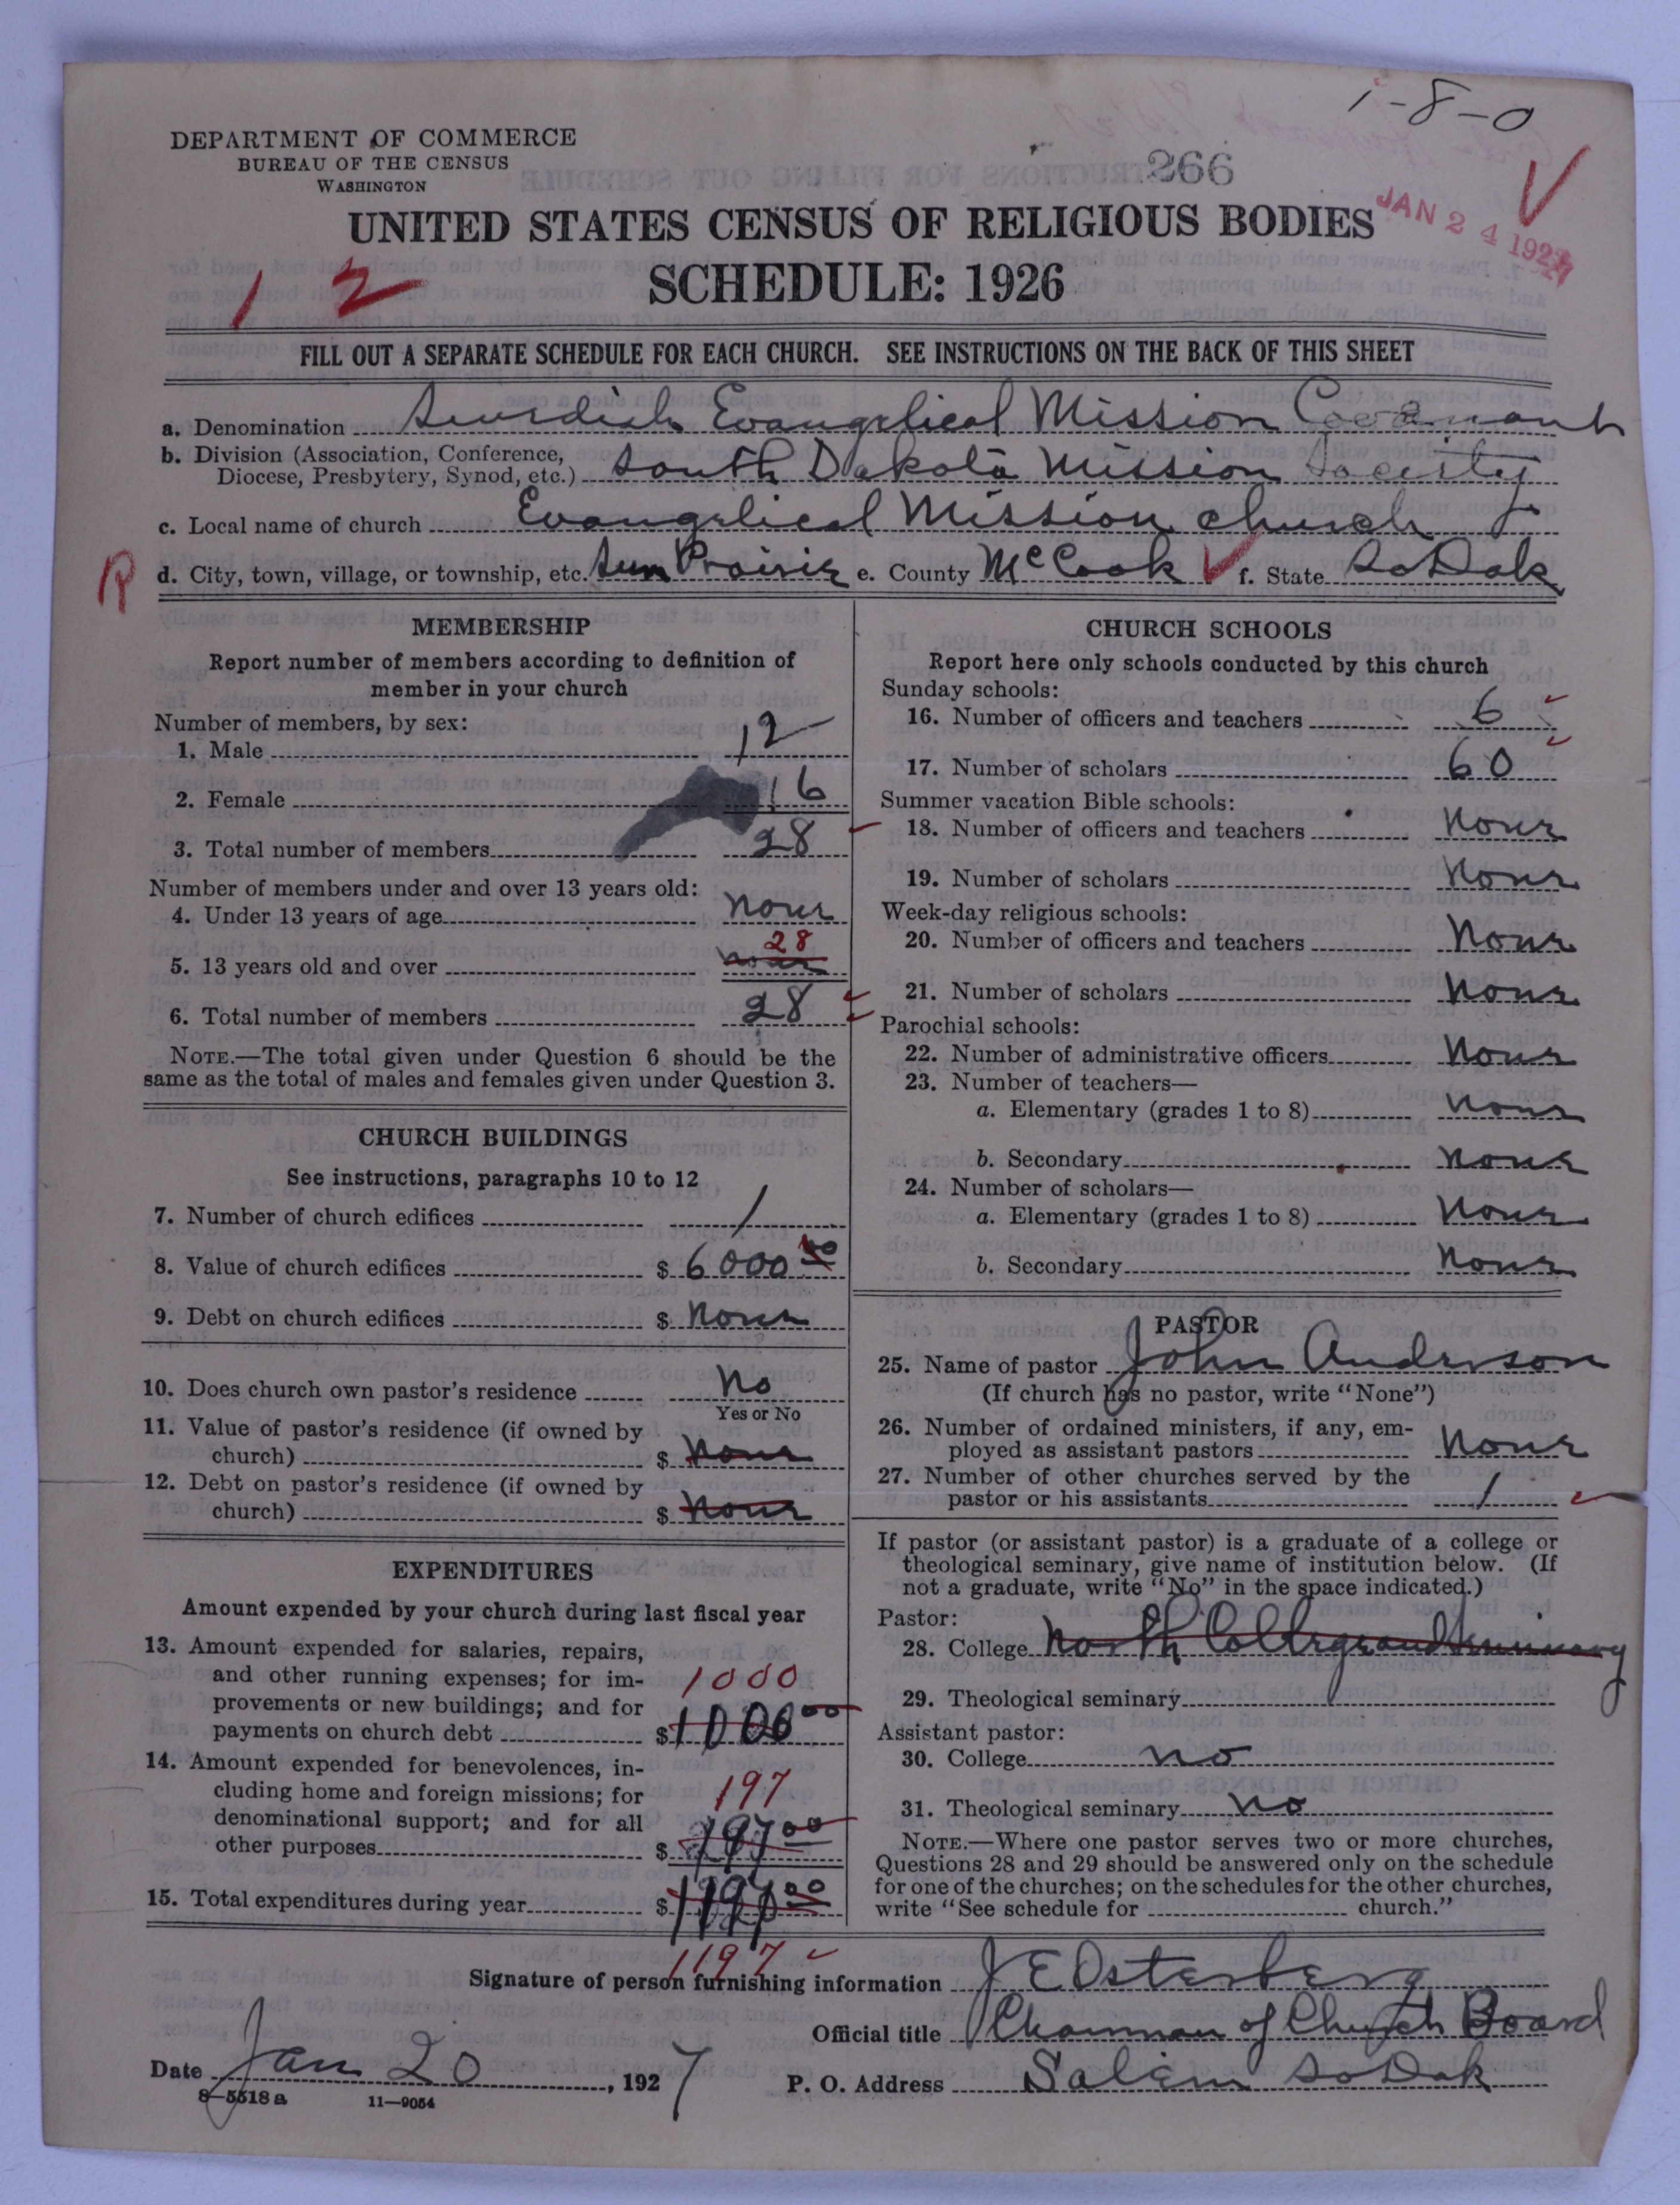 1-8-0
DEPARTMENT OF COMMERCE
BUREAU OF THE CENSUS
WASHINGTON
266
JAN 24 1927
UNITED STATES CENSUS OF RELIGIOUS BODIES
SCHEDULE: 1926
1 2
FILL OUT A SEPARATE SCHEDULE FOR EACH CHURCH. SEE INSTRUCTIONS ON THE BACK OF THIS SHEET
a. Denomination Swedish Evangelical Mission Covanant
b. Division (Association, Conference,
Diocese, Presbytery, Synod, etc.) South Dakota Mission Society
c. Local name of church Evangelical Mission church
R d. City, town, village, or township, etc. Sun Prairie e. County McCook f. State So Dak
MEMBERSHIP
Report number of members according to definition of
member in your church
Number of members, by sex:
1. Male 12
2. Female 16
3. Total number of members 28
Number of members under and over 13 years old:
4. Under 13 years of age None
28
5. 13 years old and over None
6. Total number of members 28
NOTE.—The total given under Question 6 should be the
same as the total of males and females given under Question 3.
CHURCH BUILDINGS
See instructions, paragraphs 10 to 12
7. Number of church edifices 1
8. Value of church edifices $ 6000 00
9. Debt on church edifices $ None
10. Does church own pastor's residence No
Yes or No
11. Value of pastor's residence (if owned by
church) $ None
12. Debt on pastor's residence (if owned by
church) $ None
EXPENDITURES
Amount expended by your church during last fiscal year
13. Amount expended for salaries, repairs,
and other running expenses; for im-
provements or new buildings; and for 1000
payments on church debt $ 1000 00
14. Amount expended for benevolences, in-
cluding home and foreign missions; for 197
denominational support; and for all
other purposes $ 197 00
15. Total expenditures during year $ 1197 00
1197
CHURCH SCHOOLS
Report here only schools conducted by this church
Sunday schools:
16. Number of officers and teachers 6
17. Number of scholars 60
Summer vacation Bible schools:
18. Number of officers and teachers None
19. Number of scholars None
Week-day religious schools:
20. Number of officers and teachers None
21. Number of scholars None
Parochial schools:
22. Number of administrative officers None
23. Number of teachers—
a. Elementary (grades 1 to 8) None
b. Secondary None
24. Number of scholars—
a. Elementary (grades 1 to 8) None
b. Secondary None
PASTOR
25. Name of pastor John Anderson
(If church has no pastor, write "None")
26. Number of ordained ministers, if any, em-
ployed as assistant pastors None
27. Number of other churches served by the
pastor or his assistants 1
If pastor (or assistant pastor) is a graduate of a college or
theological seminary, give name of institution below. (If
not a graduate, write "No" in the space indicated.)
Pastor:
28. College North College and Seminary
29. Theological seminary
Assistant pastor:
30. College no
31. Theological seminary no
NOTE.—Where one pastor serves two or more churches,
Questions 28 and 29 should be answered only on the schedule
for one of the churches; on the schedules for the other churches,
write "See schedule for church."
Signature of person furnishing information J E Osterberg
Official title Chairman of Church Board
Date Jan 20, 1927 P. O. Address Salem So Dak
8-5518a 11-9054